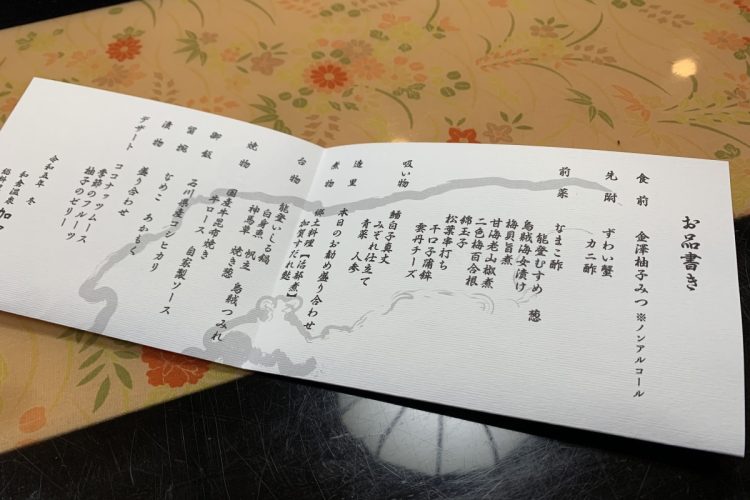 お品書き
食前 金澤柚子みつ ※ノンアルコール
先附 ずわい蟹
カニ酢
前菜 なまこ酢
能登むすめ 葱
烏賊海女漬け
梅貝旨煮
甘海老山椒煮
二色梅百合根
錦玉子
松葉串打ち
千口子蒲鉾
雲丹チーズ
吸い物 鱈白子真丈
みぞれ仕立て
青菜 人参
造里 本日のお勧め盛り合わせ
煮物 郷土料理【治部煮】
加賀すだれ麩
台物 能登いしる鍋
白身魚 帆立
神馬草 焼き葱 烏賊つみれ
焼物 国産牛昆布焼き
牛ロース 自家製ソース
御飯 石川県産コシヒカリ
留椀 なめこ あかもく
漬物 盛り合わせ
デザート ココナッツムース
季節のフルーツ
柚子のゼリー
令和五年 冬
和倉温泉